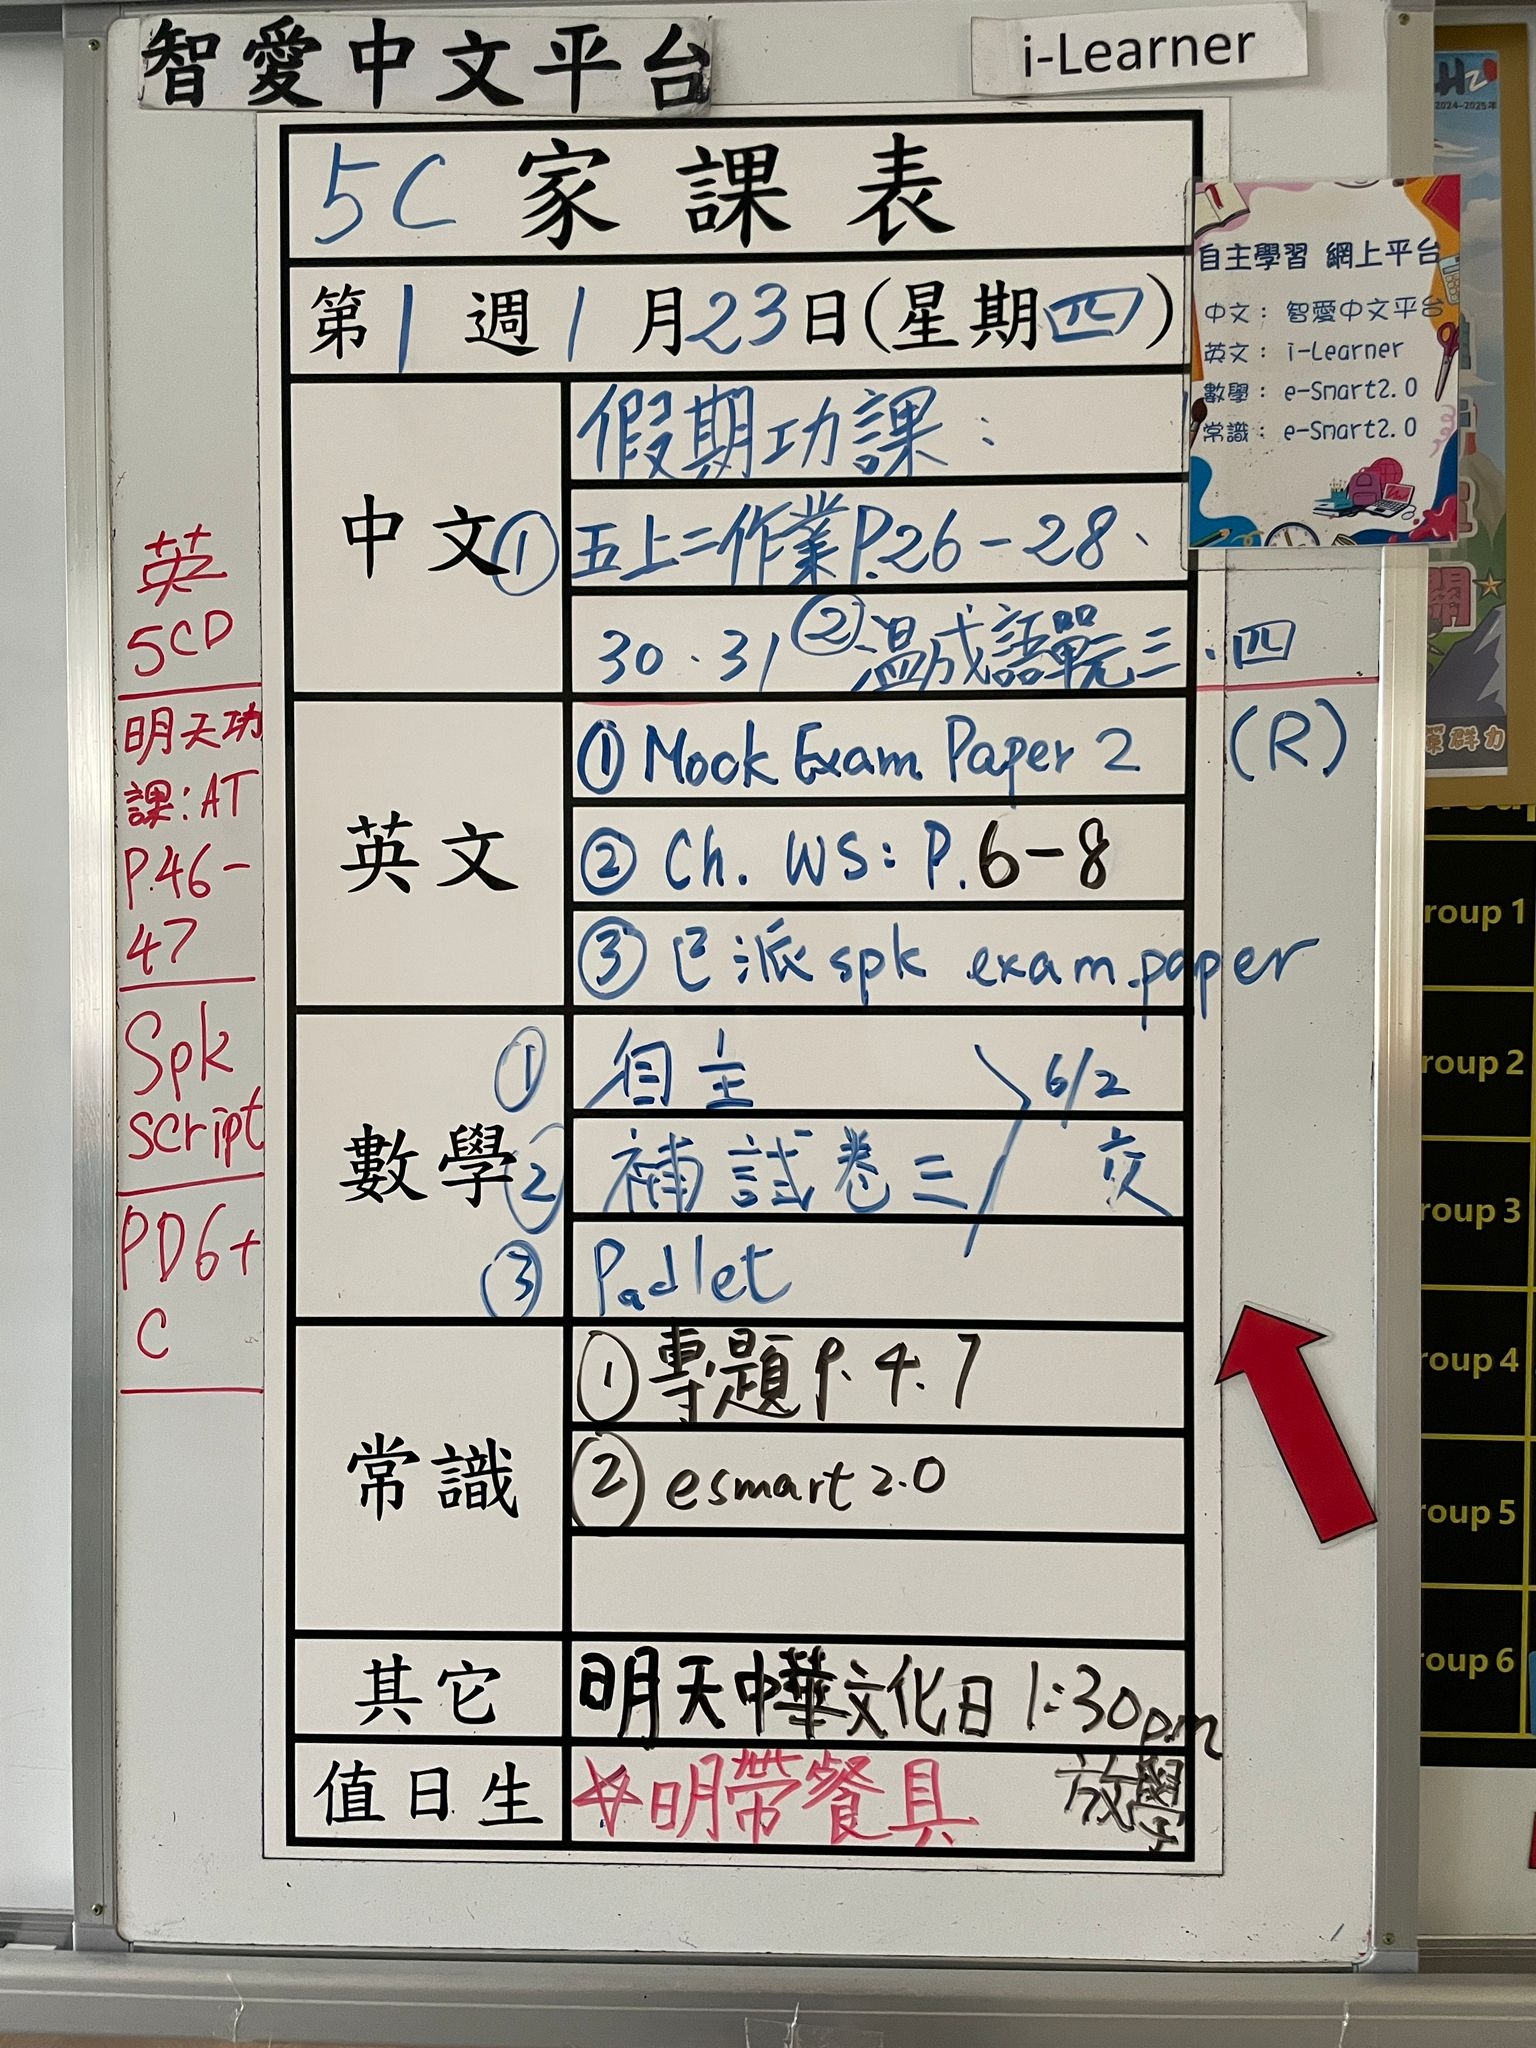 智愛中文平台
i-Learner
5C 家課表
第1週1月23日(星期四)
中文
假期功課：
① 五上二作業P.26-28、
30、31 ②溫成語單元三、四
英文
① Mock Exam Paper 2 (R)
② Ch. WS: P.6-8
③ 已派spk exam.paper
數學
① 自主
② 補試卷三
6/2
交
③ Padlet
常識
① 專題P.4.7
② esmart 2.0
其它
明天中華文化日 1:30pm
放學
值日生
☆明帶餐具
英
5CD
明天功
課:AT
P.46-
47
Spk
script
PD6+
C
自主學習 網上平台
中文： 智愛中文平台
英文： i-Learner
數學： e-Smart2.0
常識： e-Smart2.0
2024-2025年
群力
roup 1
roup 2
roup 3
roup 4
roup 5
roup 6